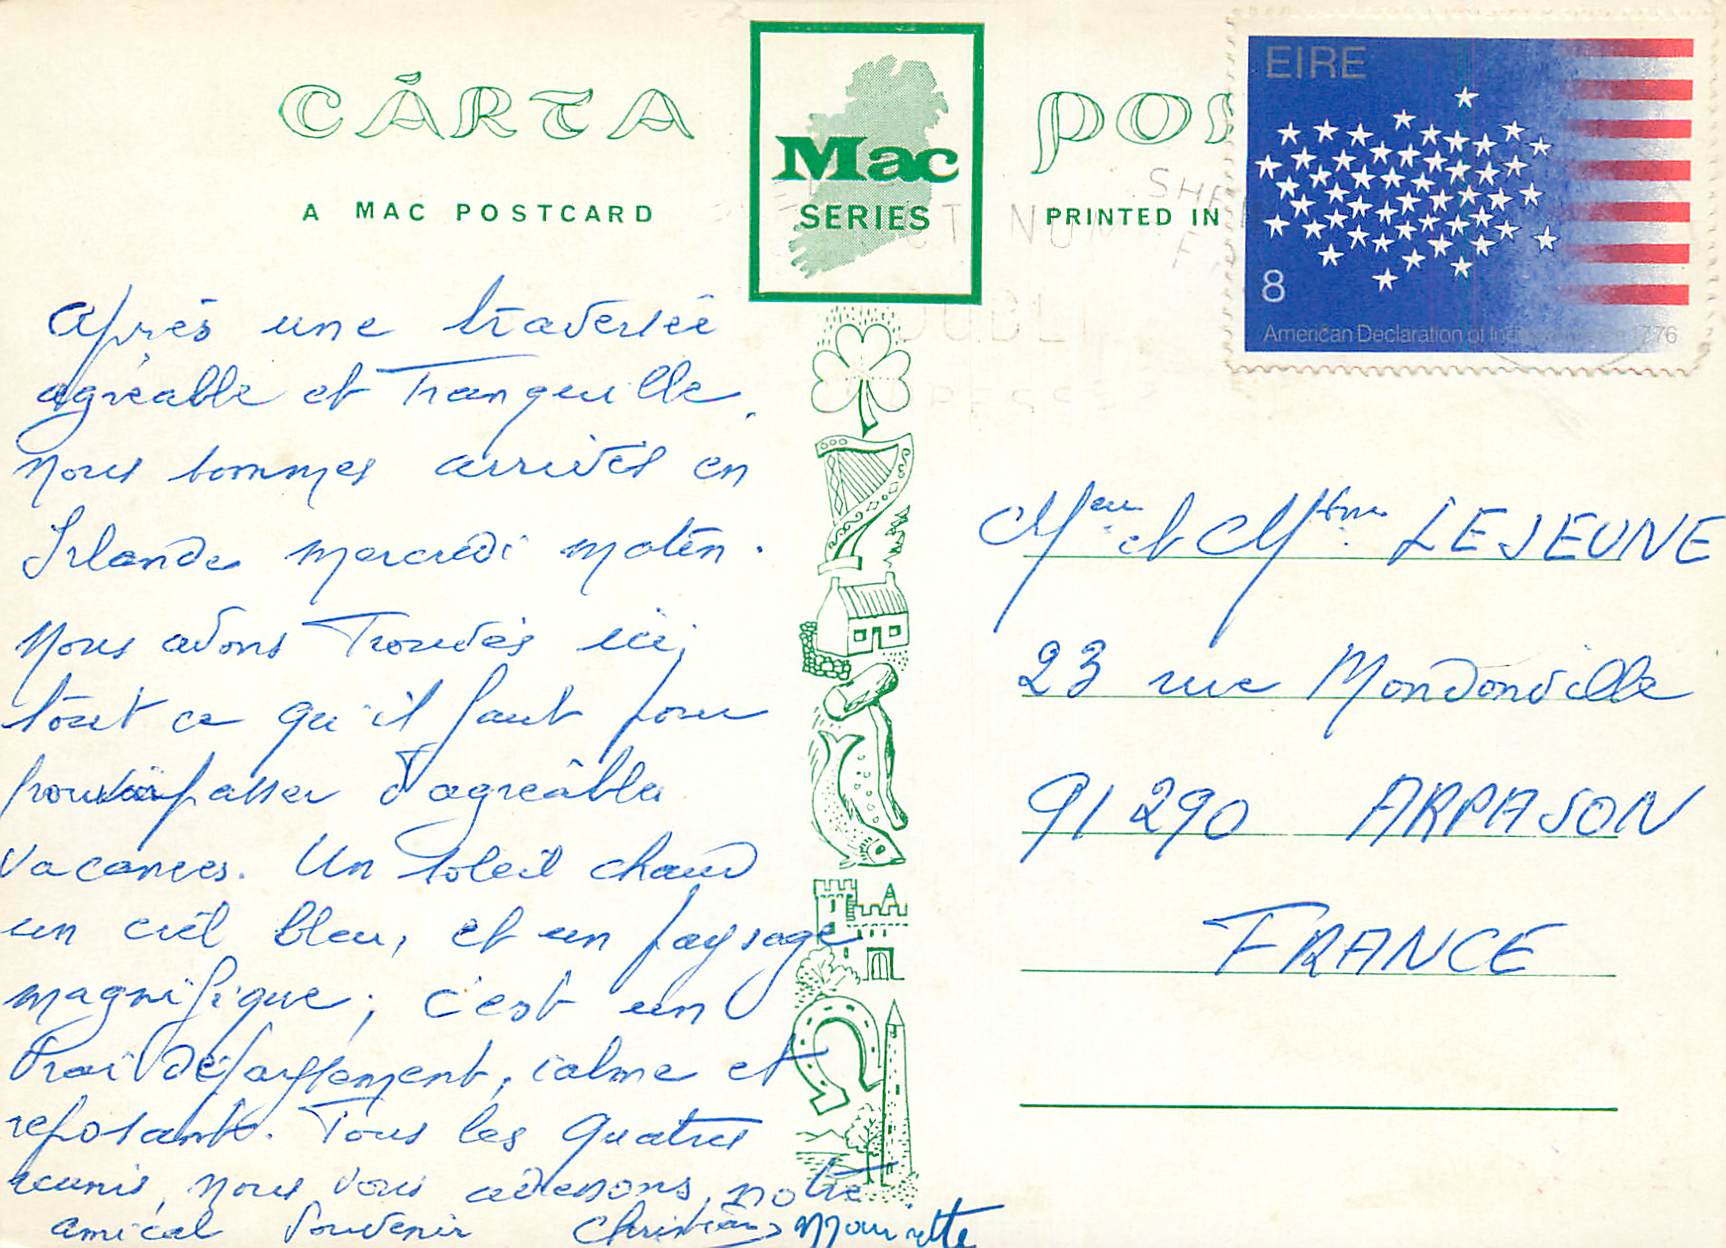 CÁRTA
A MAC POSTCARD
Mac
SERIES
PRINTED IN
EIRE
8
American Declaration of 1776
après une traversée
agréable et Tranquille,
nous sommes arrivés en
Irlande mercredi matin.
Nous avons Trouvés ici,
tout ce qu'il faut pour
passer d'agréables
vacances. Un soleil chaud
un ciel bleu, et un paysage
magnifique; c'est un
vrai calme et
reposant. Tous les quatres
reunis, nous vous adressons, notre
amical Souvenir Christian Mauricette
Mr et Mme LEJEUNE
23 rue Mondonville
91290 ARPAJON
FRANCE